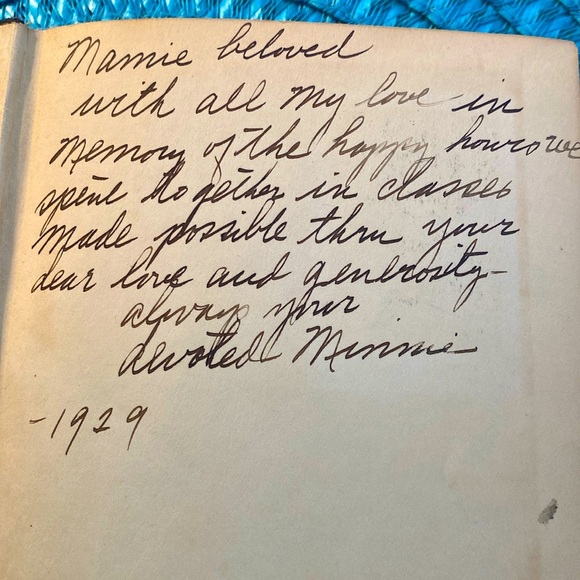 Mamie beloved
with all my love in
memory of the happy hours we
spent together in classes
made possible thru your
dear love and generosity-
always your
devoted Minnie
-1929